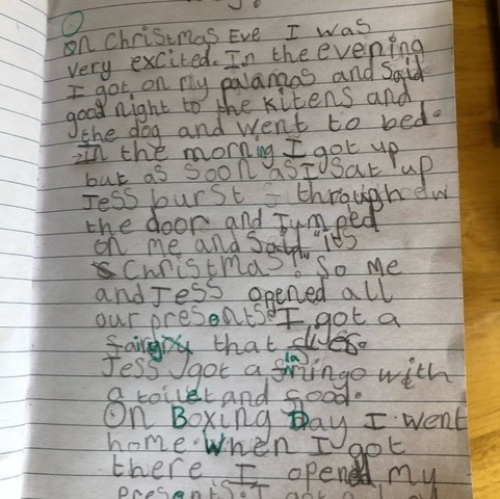 On Christmas Eve I was
very excited. In the evening
I got on my pajamas and said
good night to the kitens and
the dog and went to bed.
In the morning I got up
but as soon as I sat up
Jess burst through
the door and Jumped
on me and said "its
Christmas". So me
and Jess opened all
our presents. I got a
fairy that flies.
Jess got a flamingo with
a toilet and food.
On Boxing Day I went
home. When I got
there I opened my
presents. I got a